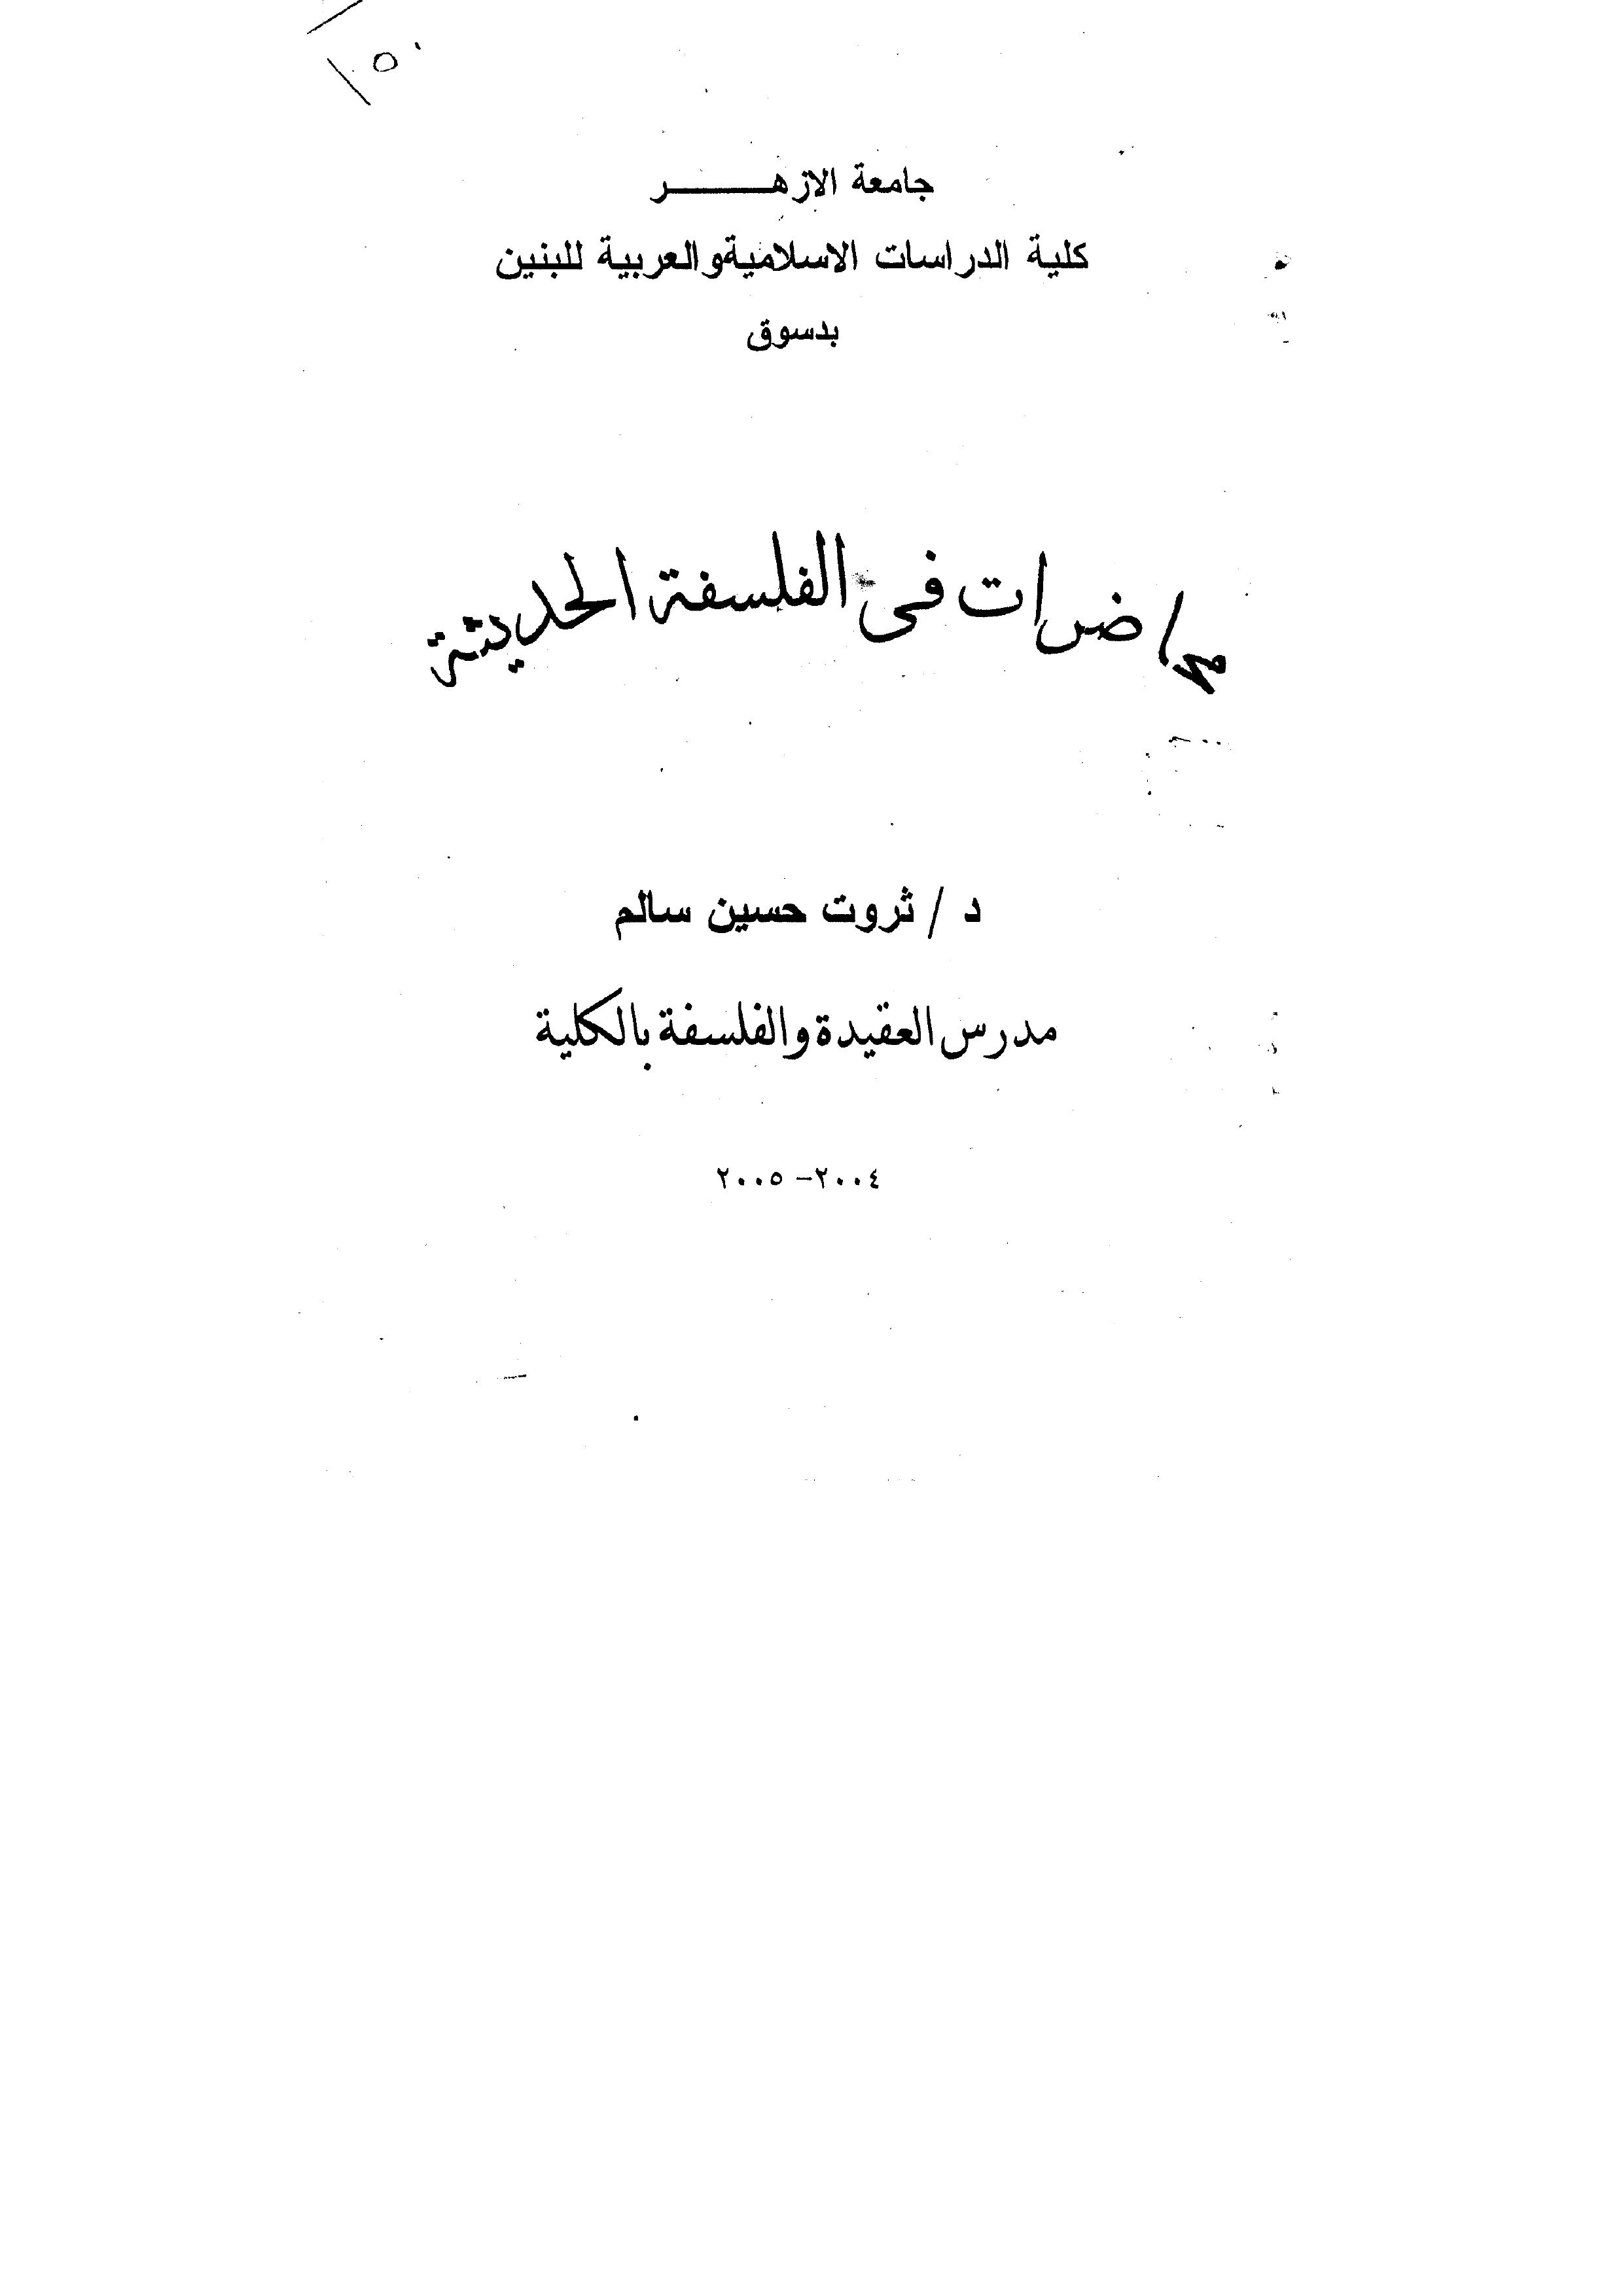 جامعة الازهـــــر
كلية الدراسات الاسلامية والعربية للبنين
بدسوق
محاضرات فى الفلسفة الحديثة
د / ثروت حسين سالم
مدرس العقيدة والفلسفة بالكلية
٢٠٠٤– ٢٠٠٥